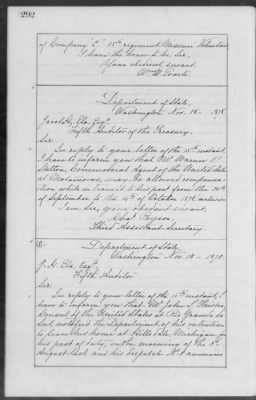 292
of Company E. 15th regiment Missouri Volunteers
I have the honor to be, Sir,
Your obedient servant,
Wm. M. Evarts.
Department of State,
Washington Nov. 18 - 1878.
Jacob H. Ela Esqr.
Fifth Auditor of the Treasury.
Sir.
In reply to your letter of the 15th instant,
I have to inform you that Mr. Warner P.
Sutton, Commercial Agent of the United States
at Matamoros, may be allowed compensa-
tion while in transit to his post from the 20th
of September to the 14th of October 1878, inclusive.
I am Sir, your obedient servant,
Chas. Payson,
Third Assistant Secretary.
Department of State,
Washington Nov. 18 - 1878.
J. H. Ela, Esqr.
Fifth Auditor
Sir
In reply to your letter of the 15th instant, I
have to inform you that Mr. John L.
Consul of the United States at Rio Grande do
Sul, notified the Department of his intention
to leave his home at Hillsdale, Michigan for
his post of duty, on the morning of the
August last, and his despatch No.